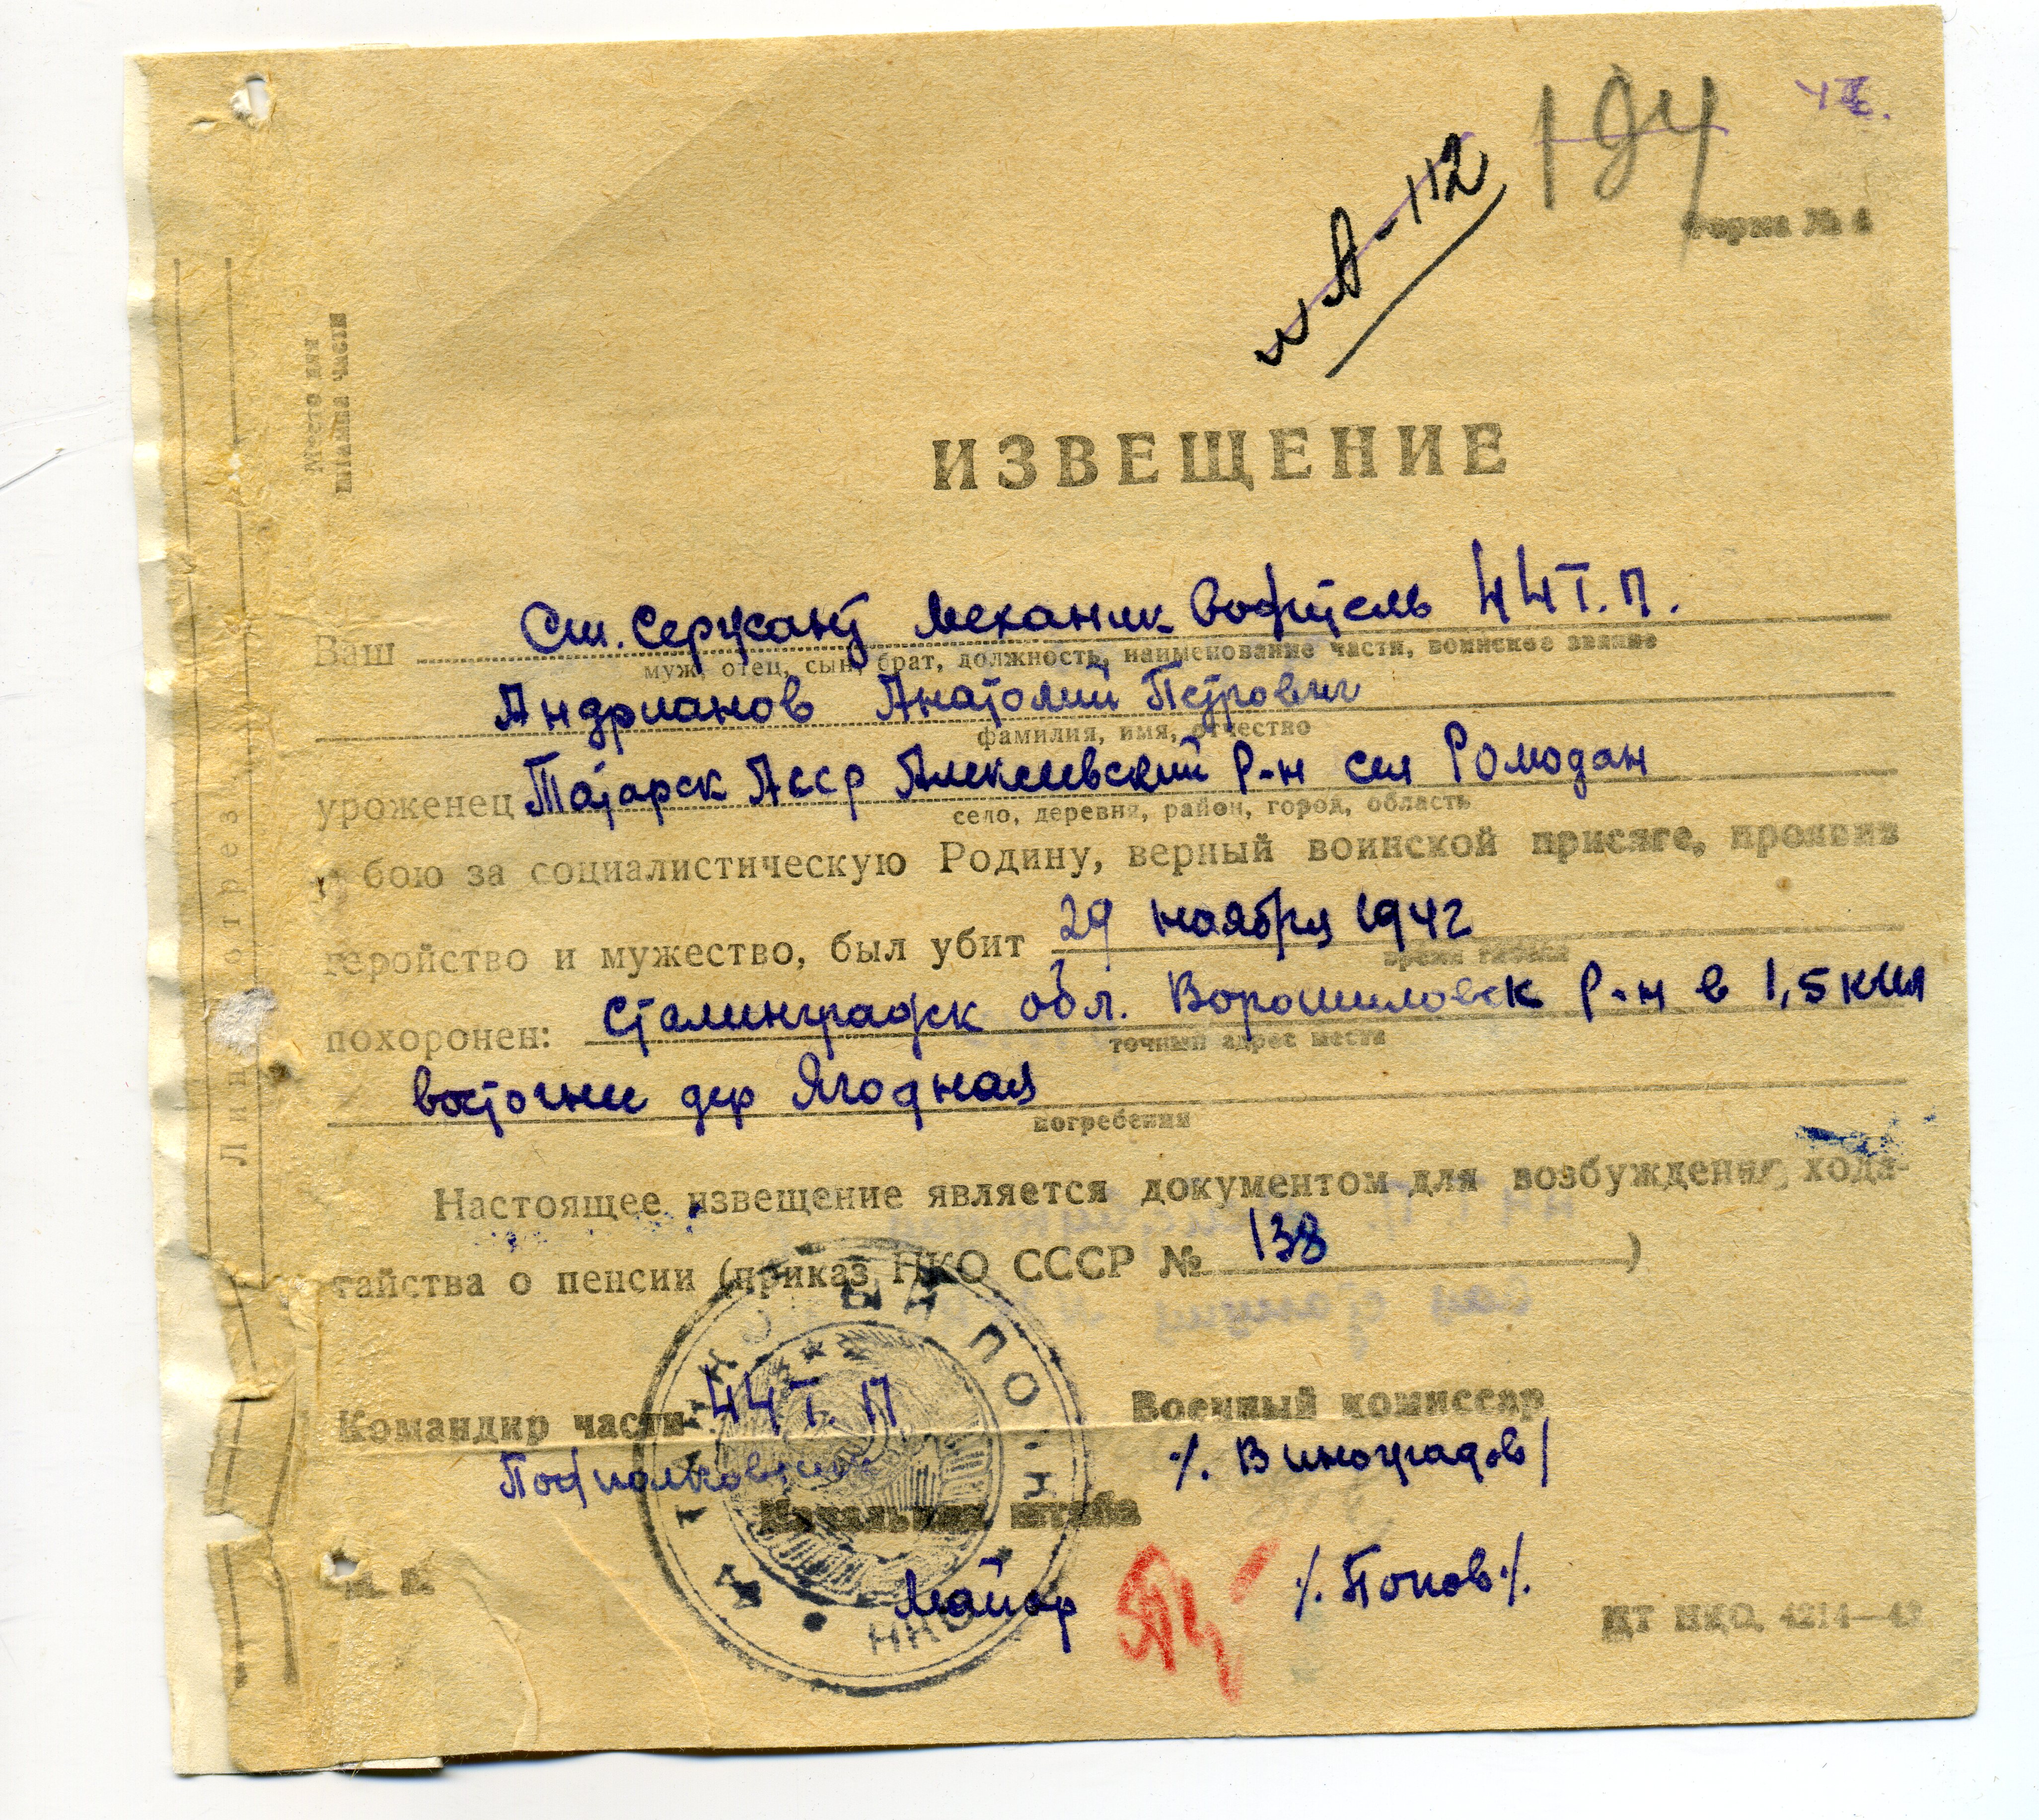 194
А-112
Форма № 4
Место для
штампа части
ИЗВЕЩЕНИЕ
Ваш Ст. Сержант Механик Водитель 44 Т. П.
муж, отец, сын, брат, должность, наименование части, воинское звание
Андрианов Анатолий Петрович
фамилия, имя, отчество
уроженец Татарск Асср Алексеевский р-н сел Ромодан
село, деревня, район, город, область
в бою за социалистическую Родину, верный воинской присяге, проявив
геройство и мужество, был убит 29 ноября 1942
время гибели
похоронен: Сталинградск обл. Ворошиловск р-н в 1,5 км
точный адрес места
восточнее дер Ягодная
погребения
Настоящее извещение является документом для возбуждения хода-
тайства о пенсии (приказ НКО СССР № 138)
Командир части 44 Т. П.
Подполковник
Военный комиссар
/. Виноградов/
Начальник штаба
Майор /. Попов ./.
М. П.
ЦТ НКО, 4214—42
Линия отреза
ТАНКОВЫЙ ПОЛК
НКО